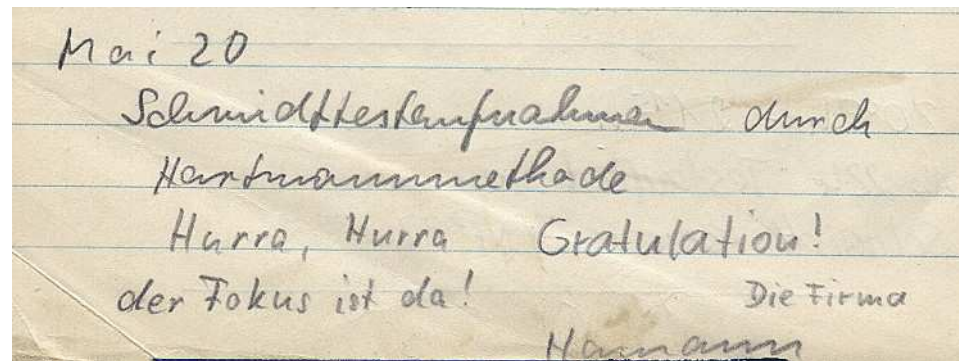 Mai 20
Schmidttestaufnahmen durch
Hartmannmethode
Hurra, Hurra Gratulation!
der Fokus ist da! Die Firma
Hamann